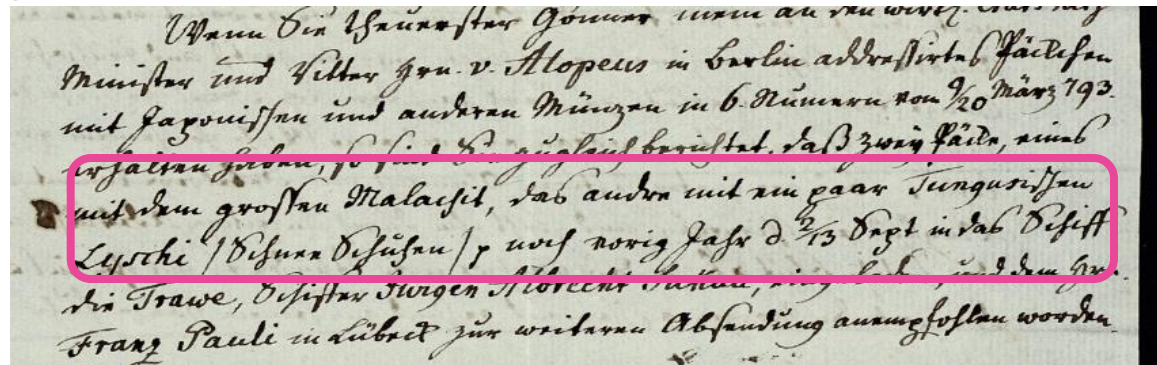 Wenn Sie theuerster Gönner mein an den wirkl.
Minister und Ritter Hrn. v. Alopeus in Berlin addressirtes Päckchen
mit Japonischen und anderen Münzen in 6 Numern vom 9/20 März 793.
erhalten haben, so sind Sie zugleich berichtet, daß zwey Päcke, eines
mit dem grossen Malachit, das andre mit ein paar Tungusischen
Lyschi /Schnee Schuhen/ p noch vorig Jahr d 2/13 Sept in das Schiff
die Trawe, Schiffer Jürgen Albrecht und dem Hrn.
Franz Pauli in Lübeck zur weiteren Absendung anempfohlen worden.